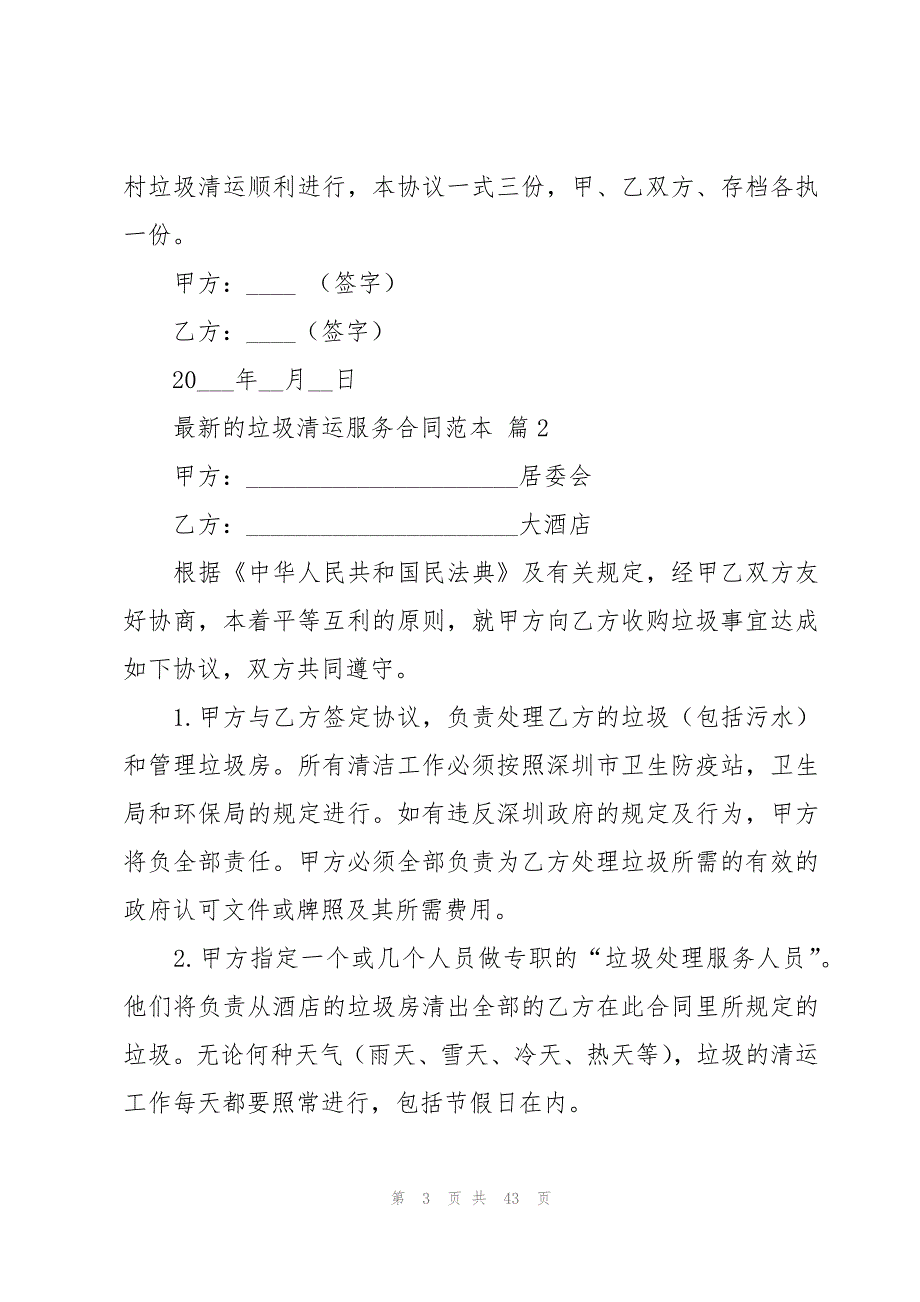 村垃圾清运顺利进行，本协议一式三份，甲、乙双方、存档各执
一份。
甲方：____ （签字）
乙方：____（签字）
20___年__月__日
最新的垃圾清运服务合同范本 篇2
甲方：______________________居委会
乙方：______________________大酒店
根据《中华人民共和国民法典》及有关规定，经甲乙双方友
好协商，本着平等互利的原则，就甲方向乙方收购垃圾事宜达成
如下协议，双方共同遵守。
1.甲方与乙方签定协议，负责处理乙方的垃圾（包括污水）
和管理垃圾房。所有清洁工作必须按照深圳市卫生防疫站，卫生
局和环保局的规定进行。如有违反深圳政府的规定及行为，甲方
将负全部责任。甲方必须全部负责为乙方处理垃圾所需的有效的
政府认可文件或牌照及其所需费用。
2.甲方指定一个或几个人员做专职的“垃圾处理服务人员”。
他们将负责从酒店的垃圾房清出全部的乙方在此合同里所规定的
垃圾。无论何种天气（雨天、雪天、冷天、热天等），垃圾的清运
工作每天都要照常进行，包括节假日在内。
第 3 页 共 43 页